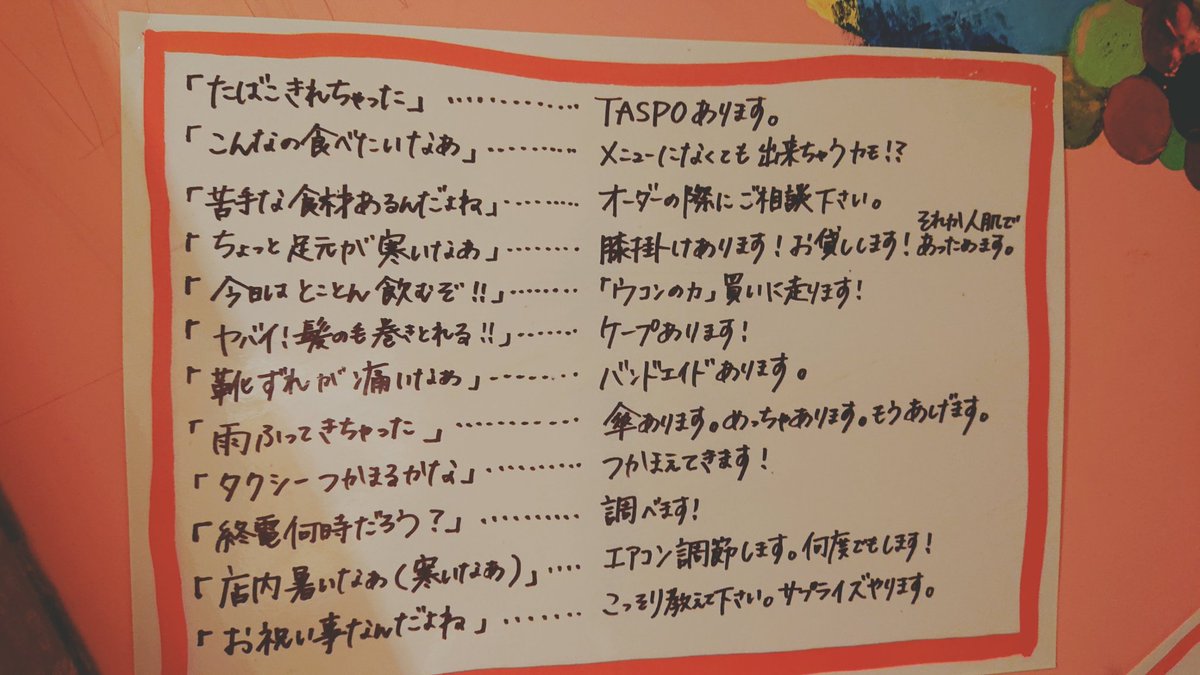 「たばこきれちゃった」…………… TASPOあります。
「こんなの食べたいなぁ」……… メニューになくても出来ちゃうカモ!?
「苦手な食材あるんだよね」……… オーダーの際にご相談下さい。
「ちょっと足元が寒いなぁ」……… 膝掛けあります！お貸しします！それか人肌であっためます。
「今日はとことん飲むぞ!!」……… 「ウコンの力」買いに走ります！
「ヤバイ！髪の毛巻きとれる!!」……… ケープあります！
「靴ずれが痛いなぁ」……… バンドエイドあります。
「雨ふってきちゃった」………… 傘あります。めっちゃあります。もうあげます。
「タクシーつかまるかな」………… つかまえてきます！
「終電何時だろう？」………… 調べます！
「店内暑いなぁ(寒いなぁ)」…… エアコン調節します。何度でもします！
「お祝い事なんだよね」……… こっそり教えて下さい。サプライズやります。